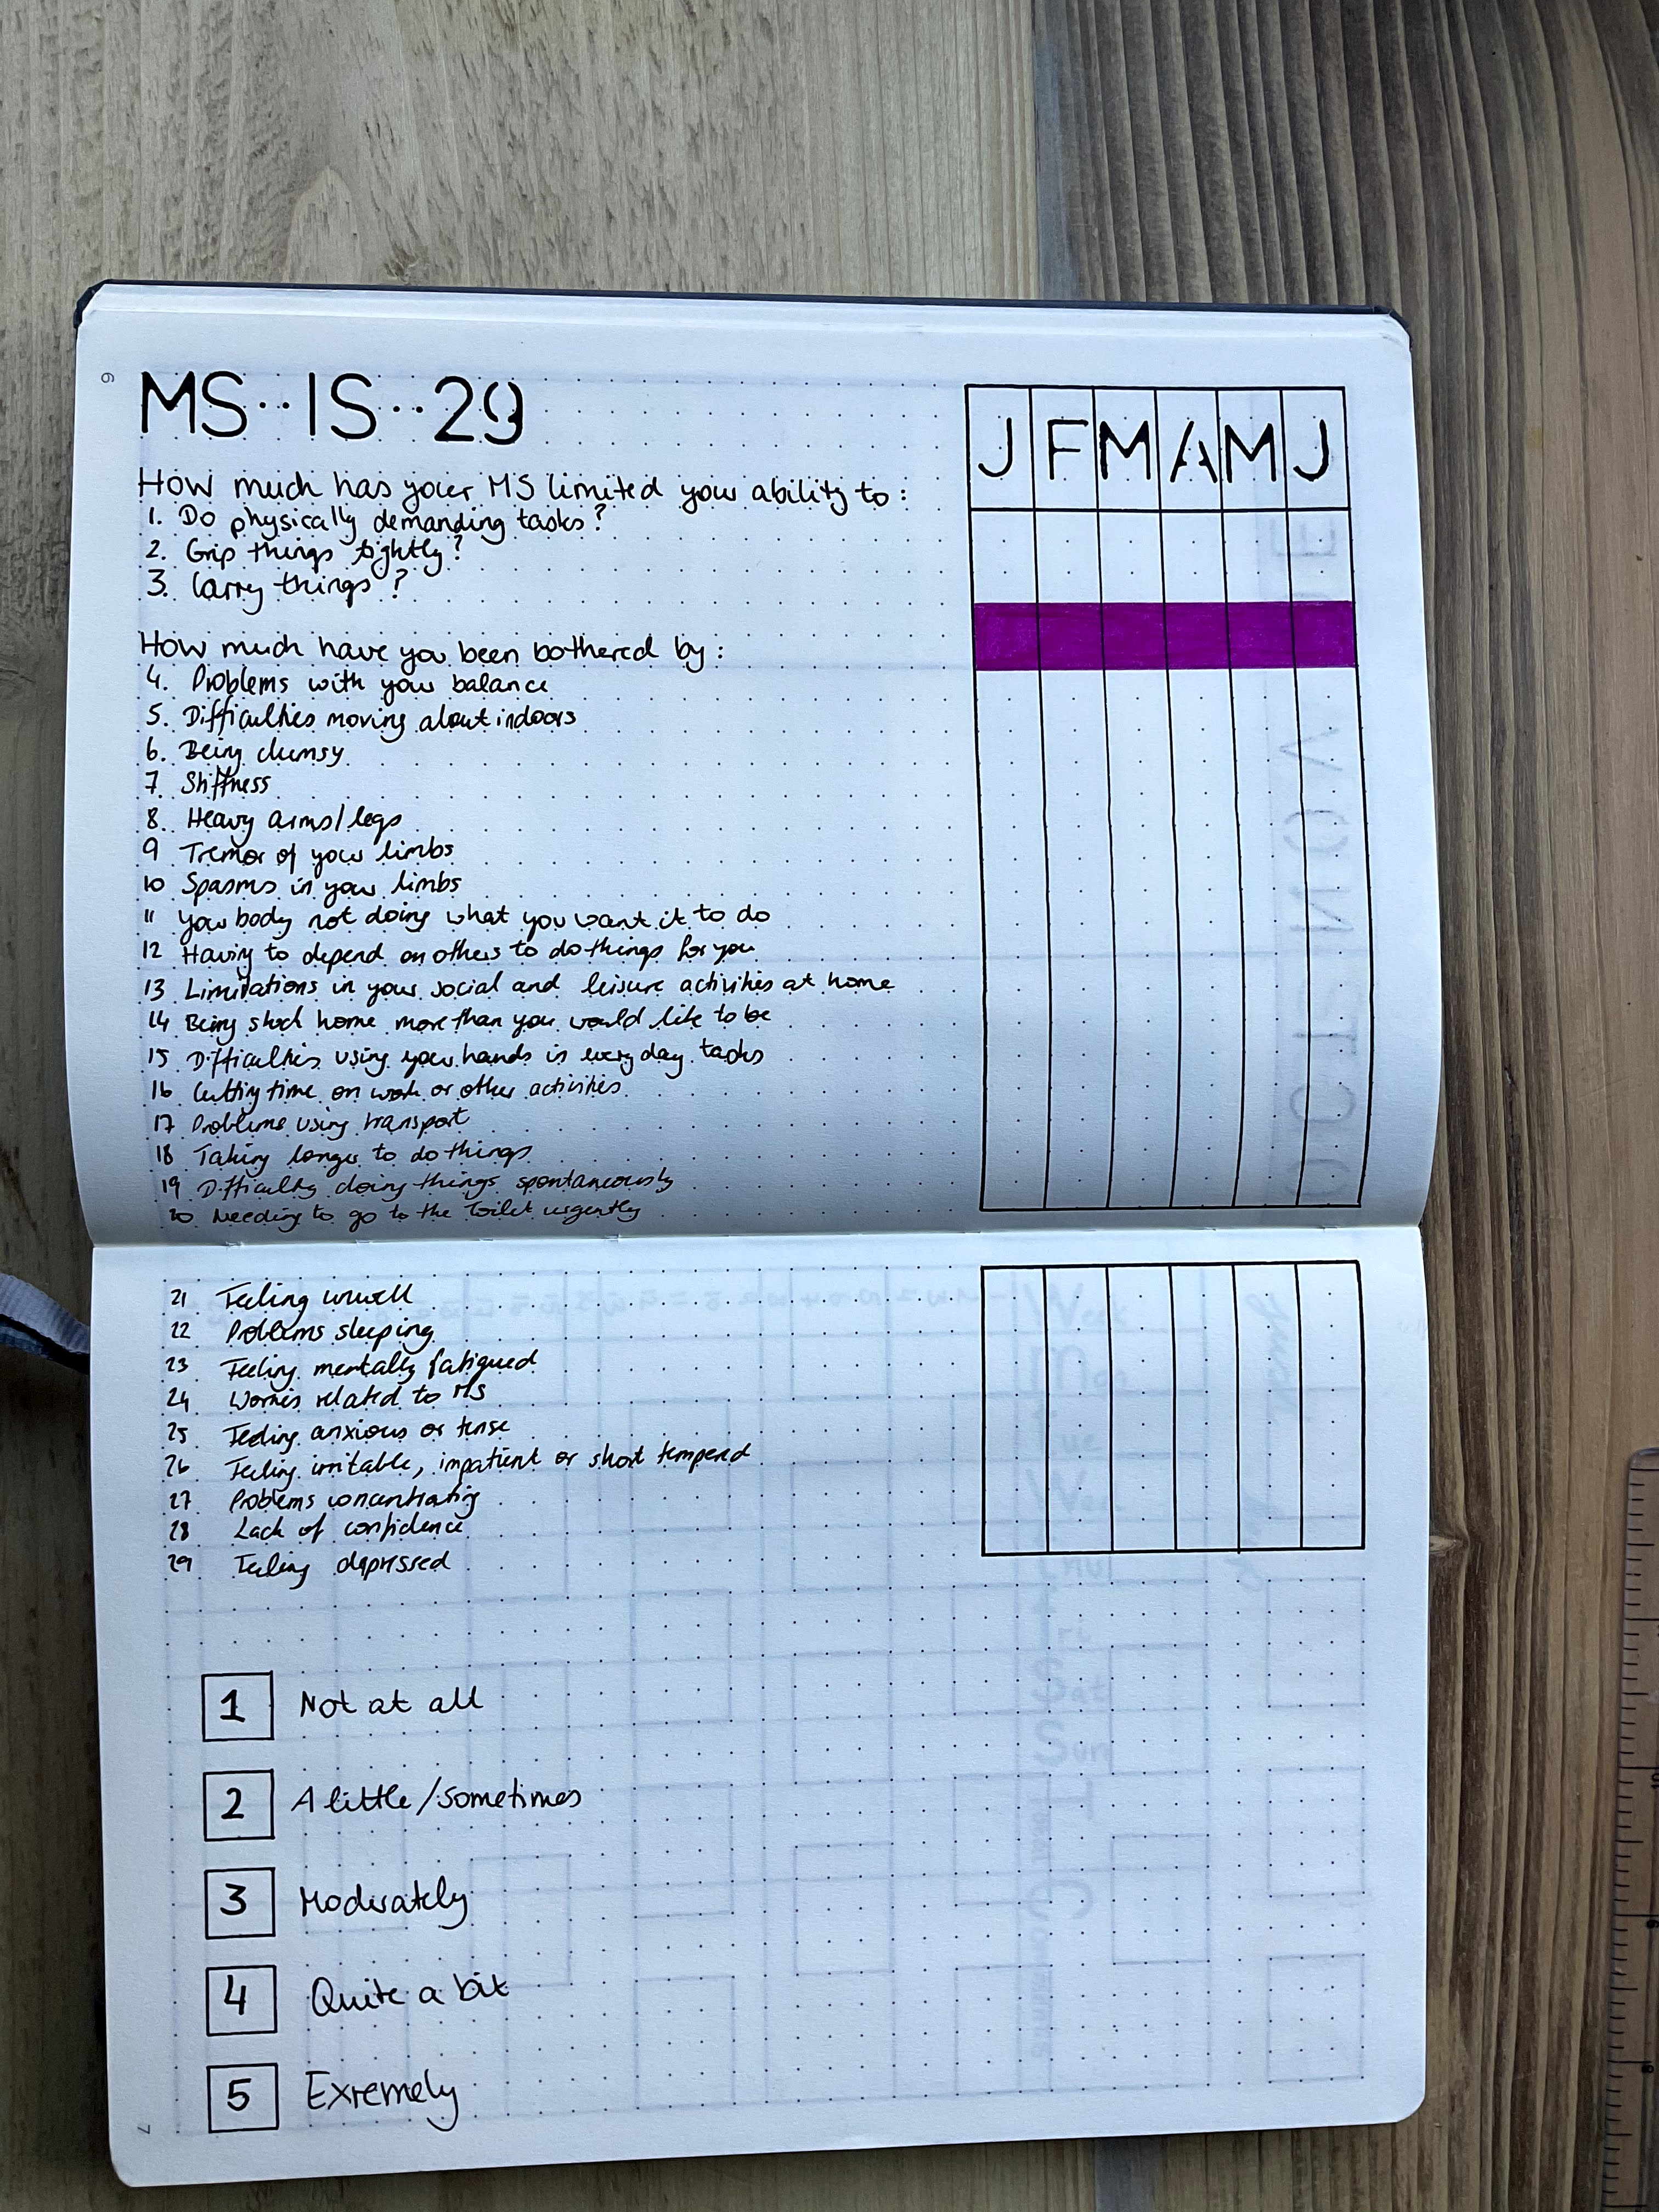 6
MS··IS··29
J F M A M J
How much has your MS limited your ability to:
1. Do physically demanding tasks?
2. Grip things tightly?
3. Carry things?
How much have you been bothered by:
4. Problems with your balance
5. Difficulties moving about indoors
6. Being clumsy
7 Stiffness
8. Heavy arms/legs
9 Tremor of your limbs
10 Spasms in your limbs
11 your body not doing what you want it to do
12 Having to depend on others to do things for you
13 Limitations in your social and leisure activities at home
14 Being stuck home more than you would like to be
15 Difficulties using your hands in everyday tasks
16 Cutting time on work or other activities
17 Problems using transport
18 Taking longer to do things
19 Difficulty doing things spontaneously
20 Needing to go to the toilet urgently
21 Feeling unwell
22 Problems sleeping
23 Feeling mentally fatigued
24 Worries related to MS
25 Feeling anxious or tense
26 Feeling irritable, impatient or short tempered
27 Problems concentrating
28 Lack of confidence
29 Feeling depressed
1 Not at all
2 A little/sometimes
3 Moderately
4 Quite a bit
5 Exremely
7
10
9
8